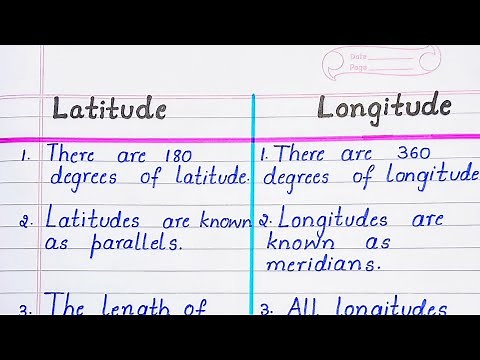 Date
Page
Latitude
Longitude
1. There are 180
degrees of latitude.
2. Latitudes are known
as parallels.
3. The length of
1. There are 360
degrees of longitude
2. Longitudes are
known as
meridians.
3. All longitudes